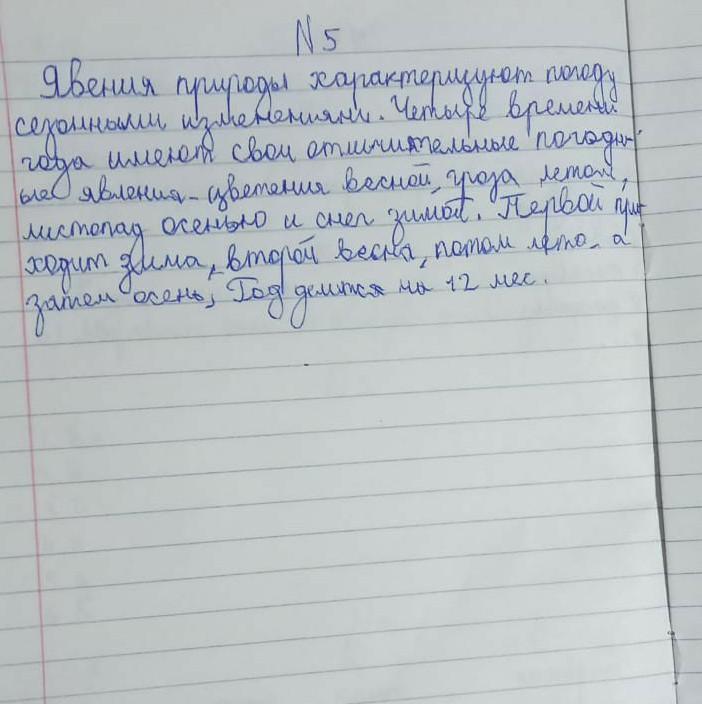 N 5
Явения природы характеризуют погоду
сезонными изменениями. Четыре времени
года имеют свои отличительные погодн-
ые явления - цветения весной, гроза летом,
листопад осенью и снег зимой. Первой при-
ходит зима, второй весна, потом лето, а
затем осень, Год делится на 12 мес.